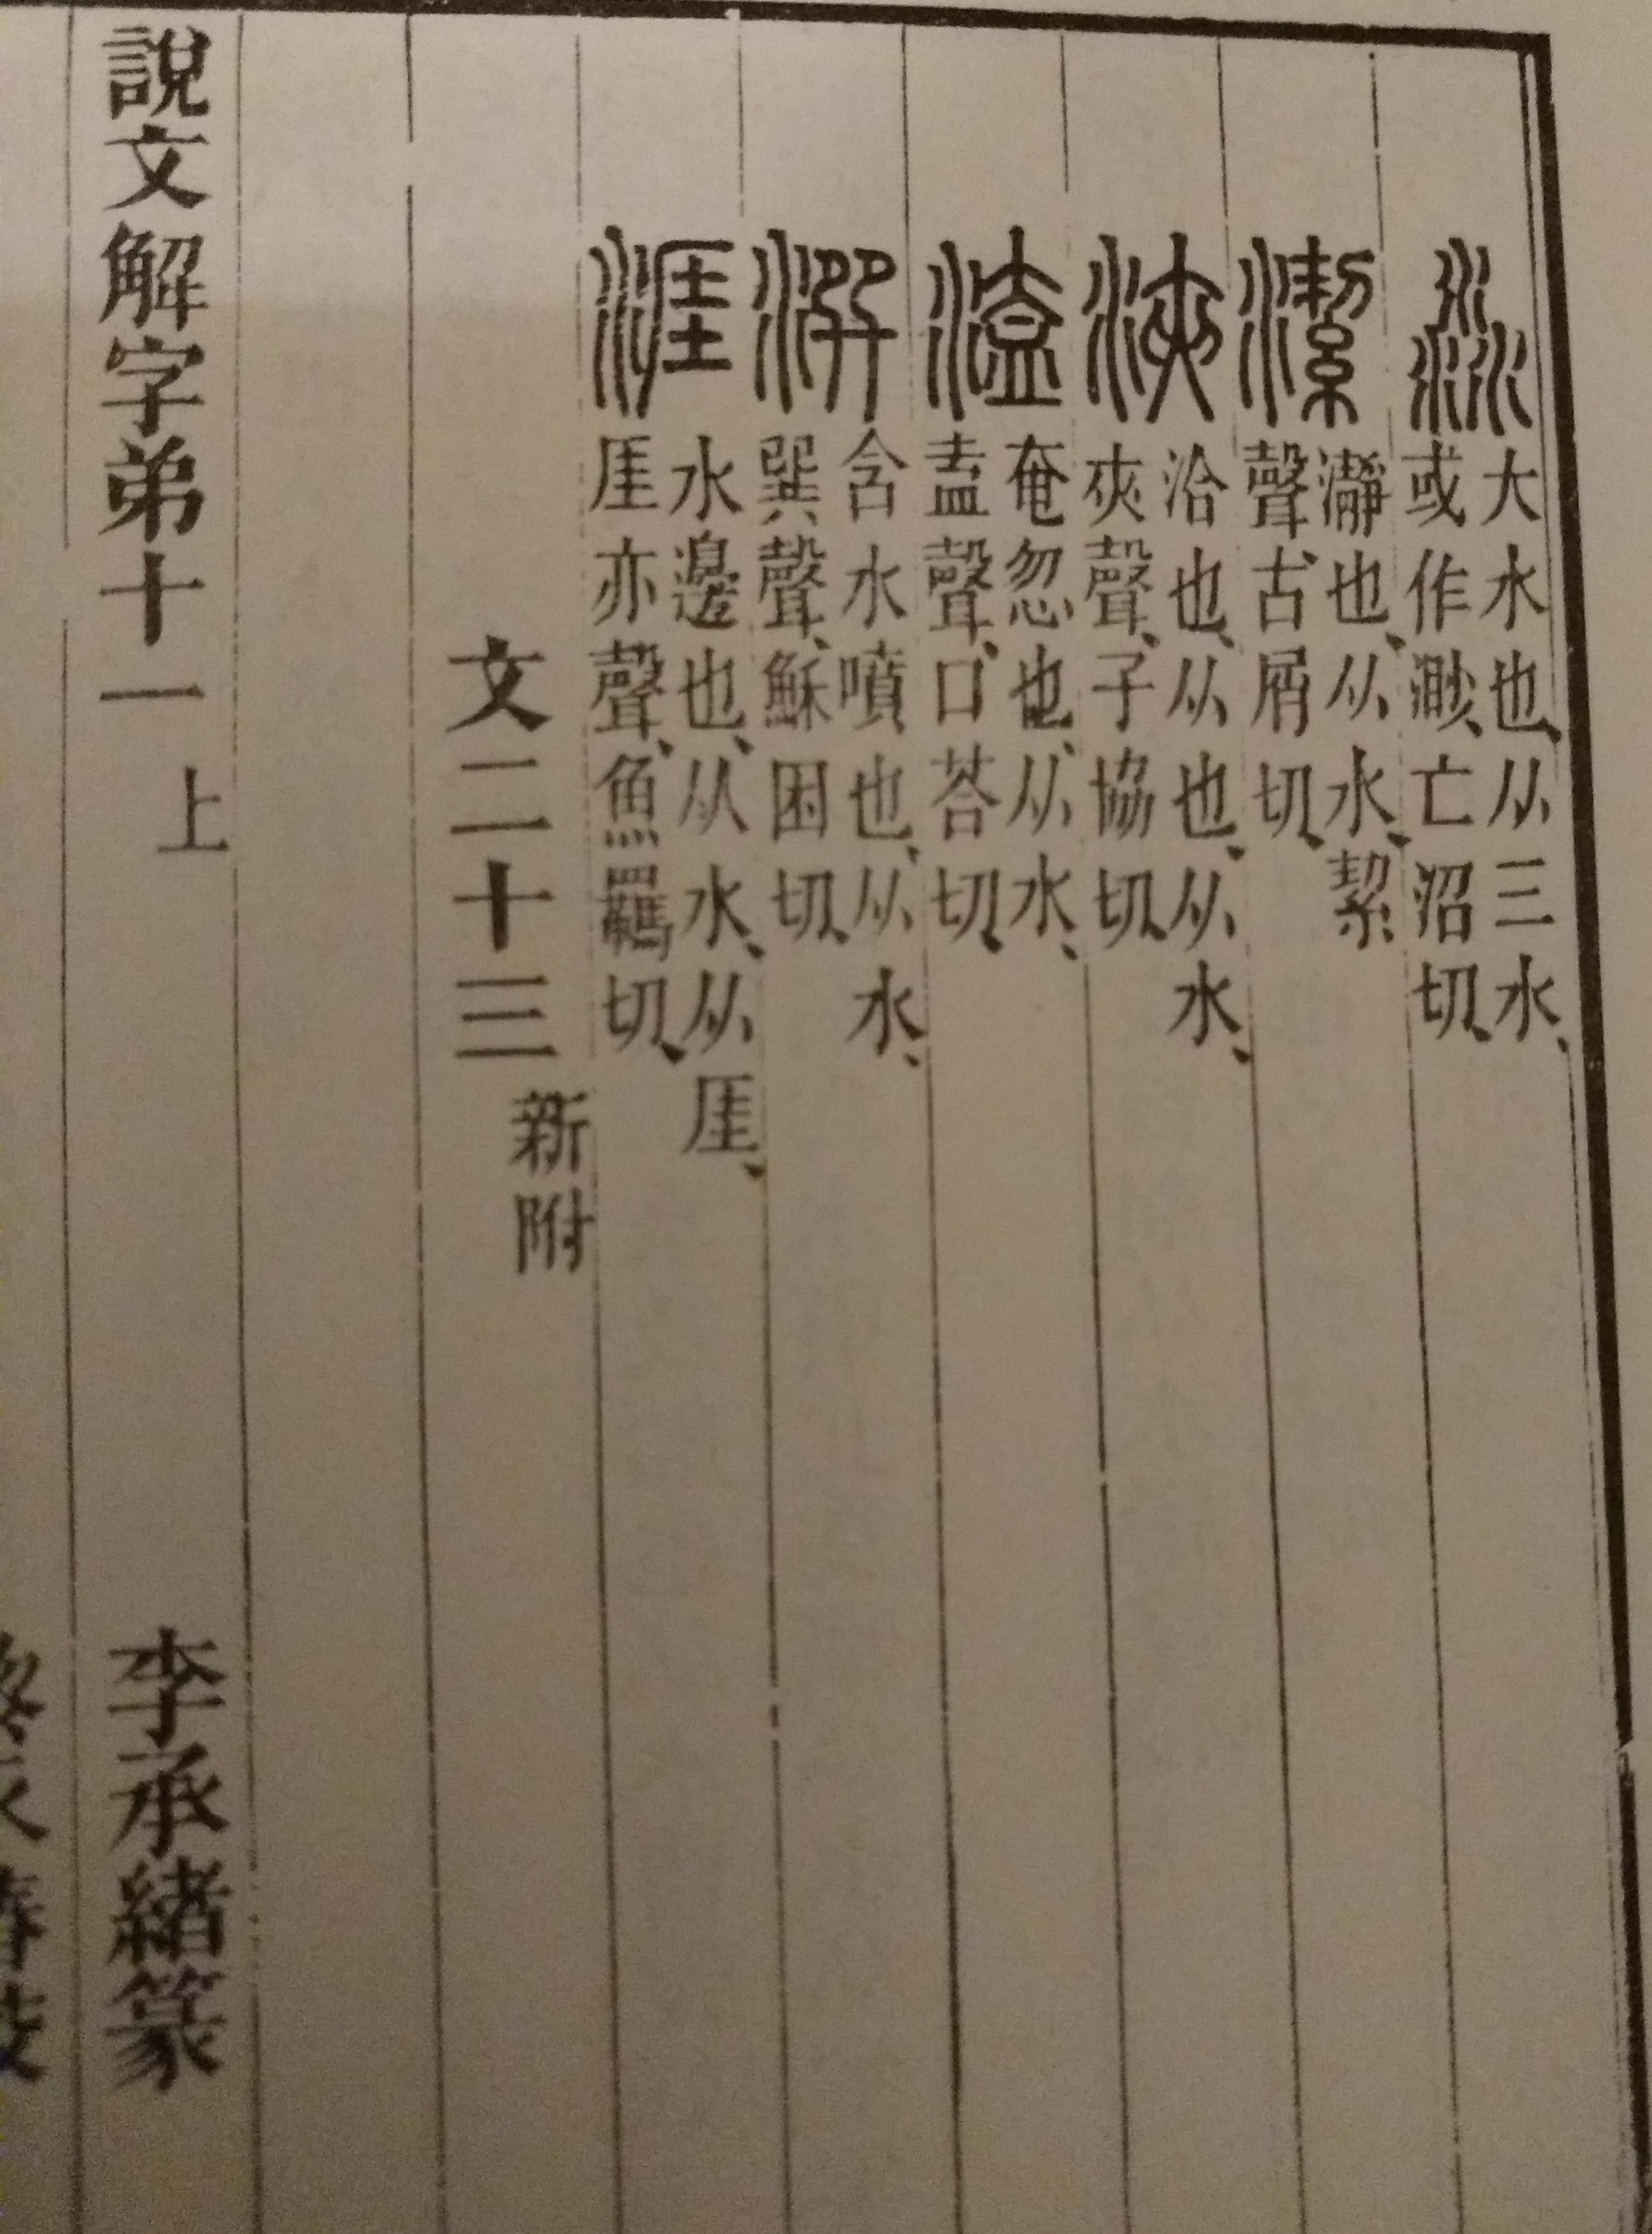 淼大水也、从三水、
或作渺、亡沼切、
潔瀞也、从水、絜
聲、古屑切、
浹洽也、从也、从水、
夾聲、子協切、
溘奄忽也、从水、
盍聲、口荅切、
潠含水噴也、从水、
巽聲、穌困切、
涯水邊也、从水、从厓、
厓亦聲、魚羈切、
文二十三新附
說文解字弟十一上 李承緒篆